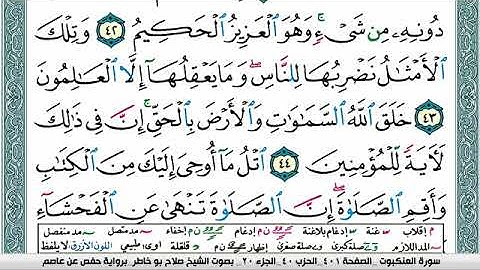 دُونِهِۦ مِن شَىْءٍ ۚ وَهُوَ ٱلْعَزِيزُ ٱلْحَكِيمُ ٤٢ وَتِلْكَ
ٱلْأَمْثَـٰلُ نَضْرِبُهَا لِلنَّاسِ ۖ وَمَا يَعْقِلُهَآ إِلَّا ٱلْعَـٰلِمُونَ
٤٣ خَلَقَ ٱللَّهُ ٱلسَّمَـٰوَٰتِ وَٱلْأَرْضَ بِٱلْحَقِّ ۚ إِنَّ فِى ذَٰلِكَ
لَـَٔايَةً لِّلْمُؤْمِنِينَ ٤٤ ٱتْلُ مَآ أُوحِىَ إِلَيْكَ مِنَ ٱلْكِتَـٰبِ
وَأَقِمِ ٱلصَّلَوٰةَ ۖ إِنَّ ٱلصَّلَوٰةَ تَنْهَىٰ عَنِ ٱلْفَحْشَآءِ
م إقلاب غنة إدغام بلاغنة إدغام إخفاء مد متصل مد منفصل
المد اللازم صلة كبرى صلة صغرى إظهار قلقلة طبيعي اللون الأزرق لا يلفظ
سورة العنكبوت - الصفحة ٤٠١ - الحزب ٤٠ - الجزء ٢٠ - بصوت الشيخ صلاح بو خاطر - برواية حفص عن عاصم